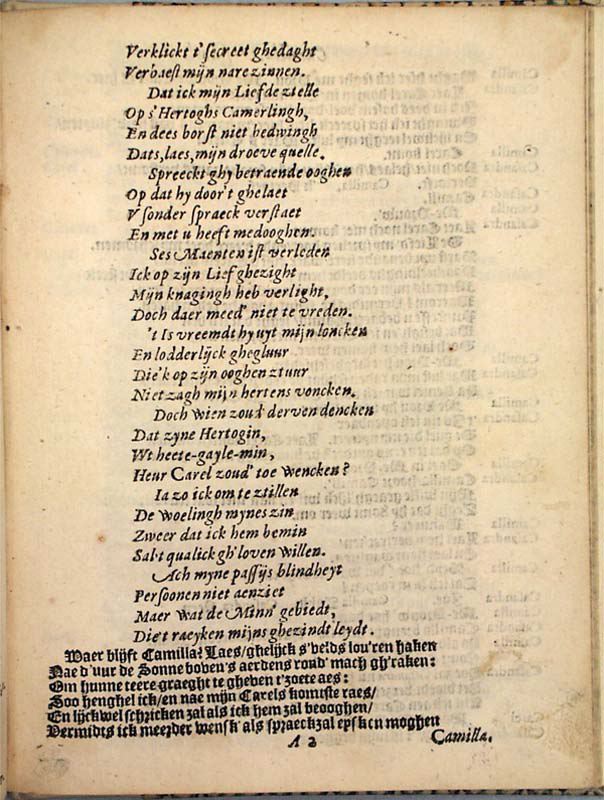 Verklickt t'secreet ghedaght
Verbaest mijn nare zinnen.
Dat ick mijn Liefde ztelle
Op s'Hertoghs Camerlingh,
En dees borst niet bedwingh
Dats, laes, mijn droeve quelle.
Spreeckt ghy betraende ooghen
Op dat hy door't ghelaet
V sonder spraeck verstaet
En met u heeft medooghen.
Ses Maenten ist verleden
Ick op zijn Lief ghezight
Mijn knagingh heb verlight,
Doch daer meed' niet te vreden.
't Is vreemdt hy uyt mijn loncken
En lodderlijck ghegluur
Die'k op zijn ooghen ztuur
Niet zagh mijn hertens voncken.
Doch wien zoud' derven dencken
Dat zyne Hertogin,
Wt heete-gayle-min,
Heur Carel zoud' toe wencken?
Ia zo ick om te ztillen
De woelingh mynes zin
Zweer dat ick hem bemin
Sal't qualick gh'loven willen.
Ach myne passijs blindheyt
Persoonen niet aenziet
Maer wat de Minn' gebiedt,
Die't raeyken mijns ghezindt leydt.
Waer blijft Camilla? Laes/ ghelijck s'velds lou'ren haken
Nae d'uur de Sonne boven's aerdens rond' mach gh'raken:
Om hunne teere graeght te gheben t'zoete aes:
Soo henghel ick/ en nae mijn Carels komste raes/
En lijckwel schricken zal als ick hem zal beooghen/
Vermidts ick meerder wensk' als spraeck zal eysken moghen
A 2
Camilla.